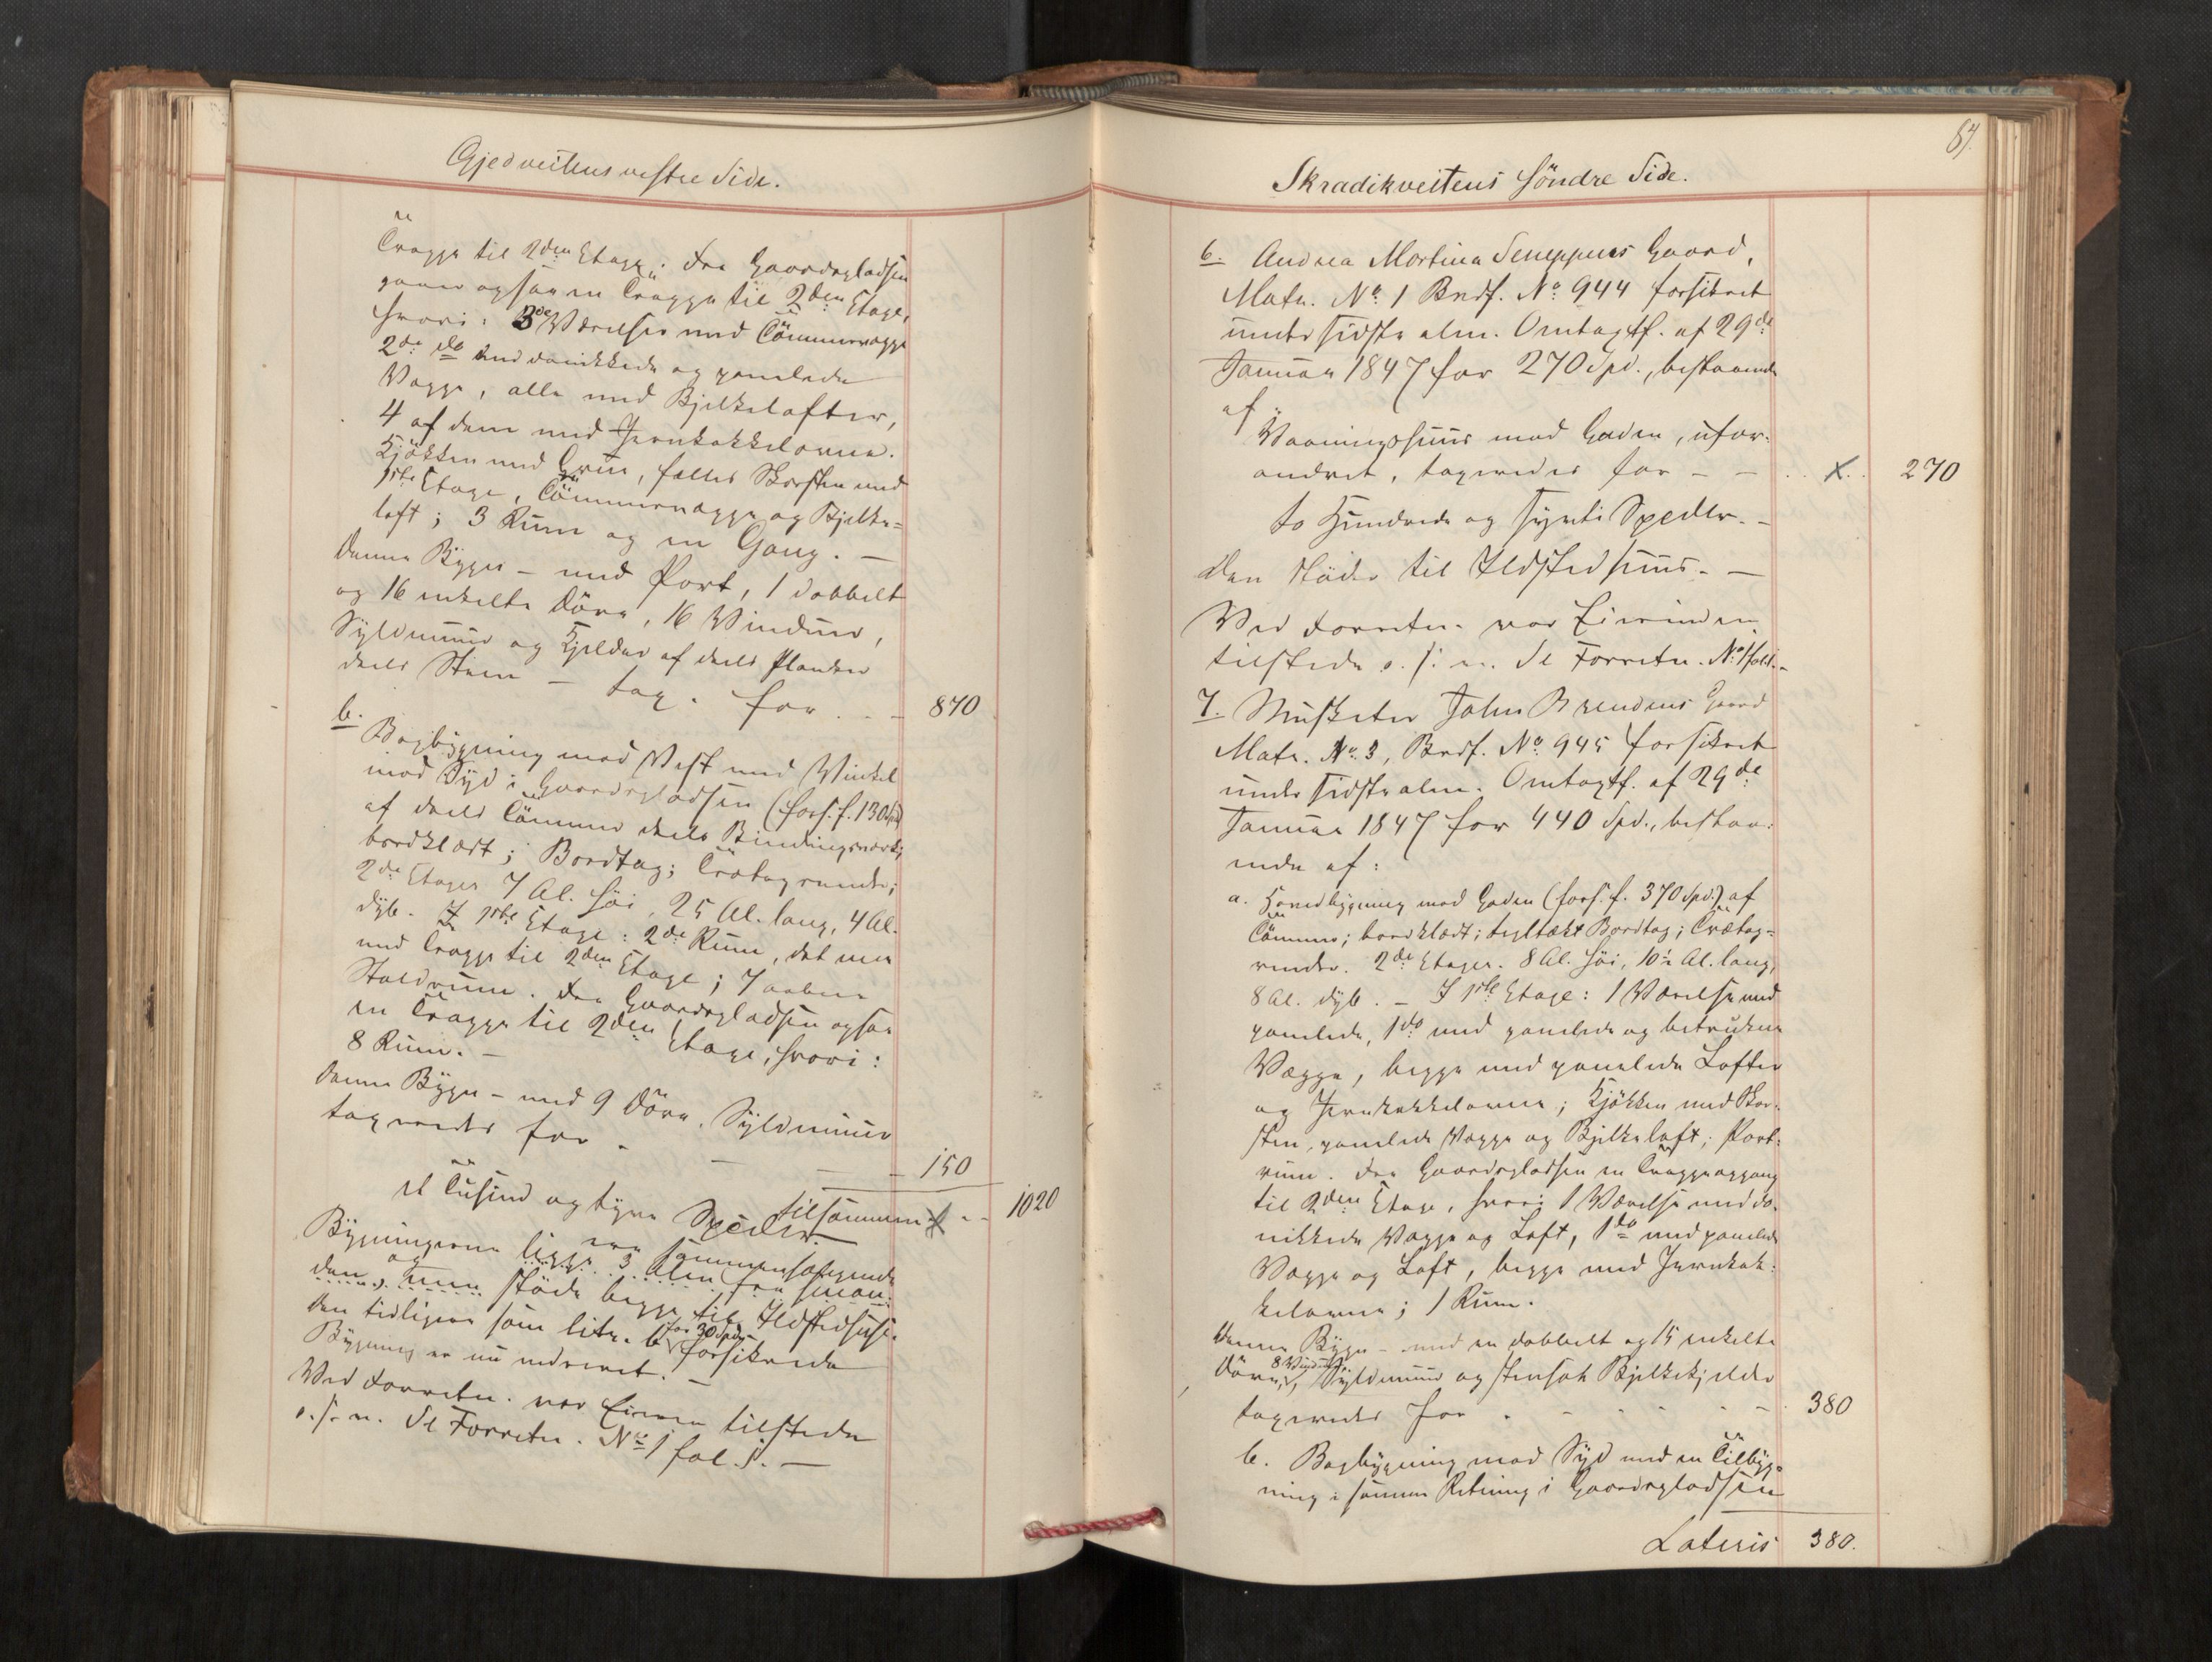 Gjedveitens vestre Side.
Trappe til 2den Etage; fra Gaardspladsen
gaaer ogsaa en Trappe til 2den Etage,
hvori: 3de Værelser med Tömmervægge
2de do med panelede
Vægge, alle med Bjelkelofter,
4 af dem med Jernkakkelovne.
Kjökken med Grue, fælles Skorsten med
1ste Etage, Tömmervægge og Bjelke-
loft; 3 Rum og en Gang. —
Denne Bygn. – med Port, 1 dobbelt
og 16 enkelte Döre, 16 Vinduer,
Syldmuur og Kjelder af deels Planker
deels Steen – tax. for . . – 870
b. Bagbygning mod Vest med Vinkel
mod Syd i Gaardspladsen (fors. f. 130 Spd.)
af deels Tömmer deels Bindingsværk,
bordklædt; Bordtag; Trætagrender;
2de Etager 7 Al. höi, 25 Al. lang, 4 Al.
dyb. I 1ste Etage: 2de Rum, det ene
med Trappe til 2den Etage; 7 aabne
Staldrum. Fra Gaardspladsen ogsaa
en Trappe til 2den Etage, hvori:
8 Rum. –
Denne Bygn – med 9 Döre, Syldmuur
taxeredes for – – – – 150
tilsammen . . 1020
et Tusind og tyve Specdlr.
Bygningerne ere sammenhængende
og ligge 3 Alen fra hinan-
den, men støde begge til Ildstedhuse.
Den tidligere som litr. b for 30 Spd. forsikrede
Bygning er nu nedrevet. –
Ved Forretn. var Eieren tilstede
o. s. v. Se Forretn. No 1 fol. 1. —
87.
Skradikveitens söndre Side.
6. Andrea Martina Seneppens Gaard,
Matr. No 1 Brdf. No 944 forsikret
under sidste alm. Omtaxtf. af 29de
Januar 1847 for 270 Spd., bestaaende
af
Vaaningshuus mod Gaden, ufor-
andret, taxeredes for – – . . X . . 270
to Hundrede og sytti Specdlr. –
Den stöder til Ildstedhuus. –
Ved Forretn. var Eierinden
tilstede o. s. v. Se Forretn. No 1 fol. 1. –
7. Musketer John Brendens Gaard
Matr. No 3, Brdf. No 945 forsikret
under sidste alm. Omtaxtf. af 29de
Januar 1847 for 440 Spd., bestaa-
ende af:
a. Hovedbygning mod Gaden (fors. f. 370 Spd.) af
Tömmer; bordklædt; tegltækt Bordtag; Trætag-
render. 2de Etager. 8 Al. höi, 10½ Al. lang,
8 Al. dyb. – I 1ste Etage: 1 Værelse med
panelede, 1 do med panelede og betrukne
Vægge, begge med panelede Lofter
og Jernkakkelovne; Kjökken med Skor-
sten, panelede Vægge og Bjelkeloft; Port-
rum. Fra Gaardspladsen en Trappeopgang
til 2den Etage, hvori 1 Værelse med
Vægge og Loft, 1 do med panelede
Vægge og Loft, begge med Jernkak-
kelovne; 1 Rum.
Denne Bygn – med en dobbelt og 15 enkelte
Döre, 8 Vinduer, Syldmuur og Bjelkekjelder
taxeredes for . – – – – – 380
b. Bagbygning mod Syd med en Tilbyg-
ning i samme Retning i Gaardspladsen
Lateris 380.